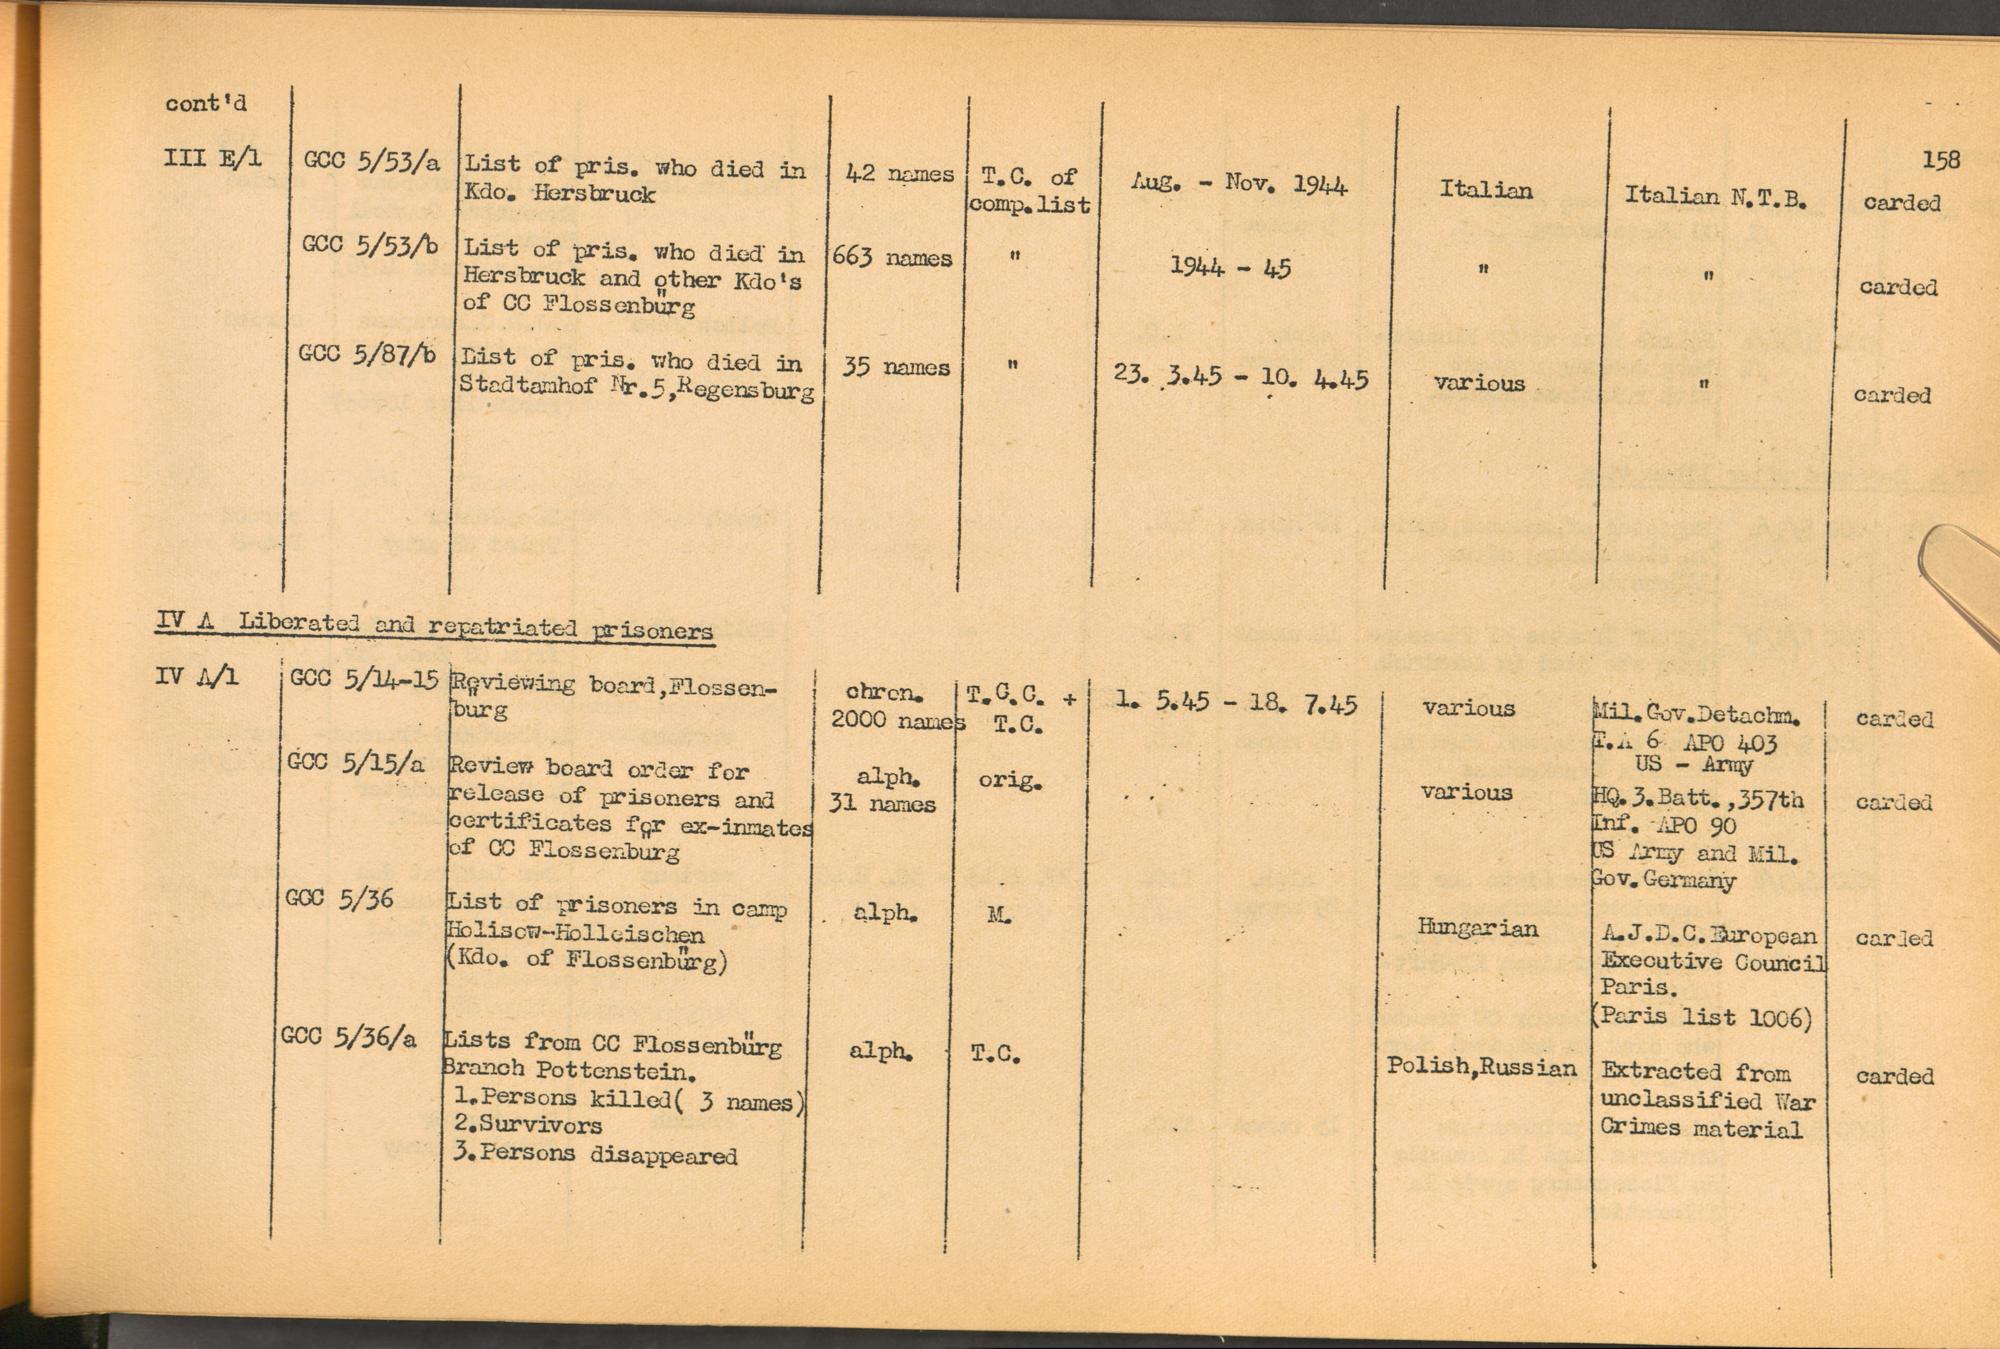 cont'd
158
III E/1 GCC 5/53/a List of pris. who died in 42 names T.C. of Aug. - Nov. 1944 Italian Italian N.T.B. carded
Kdo. Hersbruck comp.list
GCC 5/53/b List of pris. who died in 663 names " 1944 - 45 " " carded
Hersbruck and other Kdo's
of CC Flossenbürg
GCC 5/87/b List of pris. who died in 35 names " 23. 3.45 - 10. 4.45 various " carded
Stadtamhof Nr.5,Regensburg
IV A Liberated and repatriated prisoners
IV A/1 GCC 5/14-15 Reviewing board,Flossen- chron. T.C.C. + 1. 5.45 - 18. 7.45 various Mil.Gov.Detachm. carded
bürg 2000 names T.C. T.A 6 APO 403
US - Army
GCC 5/15/a Review board order for alph. orig. various HQ.3.Batt.,357th carded
release of prisoners and 31 names Inf. APO 90
certificates for ex-inmates US Army and Mil.
of CC Flossenbürg Gov.Germany
GCC 5/36 List of prisoners in camp alph. M. Hungarian A.J.D.C.European carded
Holisow-Holleischen Executive Council
(Kdo. of Flossenbürg) Paris.
(Paris list 1006)
GCC 5/36/a Lists from CC Flossenbürg alph. T.C. Polish,Russian Extracted from carded
Branch Pottenstein. unclassified War
1.Persons killed( 3 names) Crimes material
2.Survivors
3.Persons disappeared